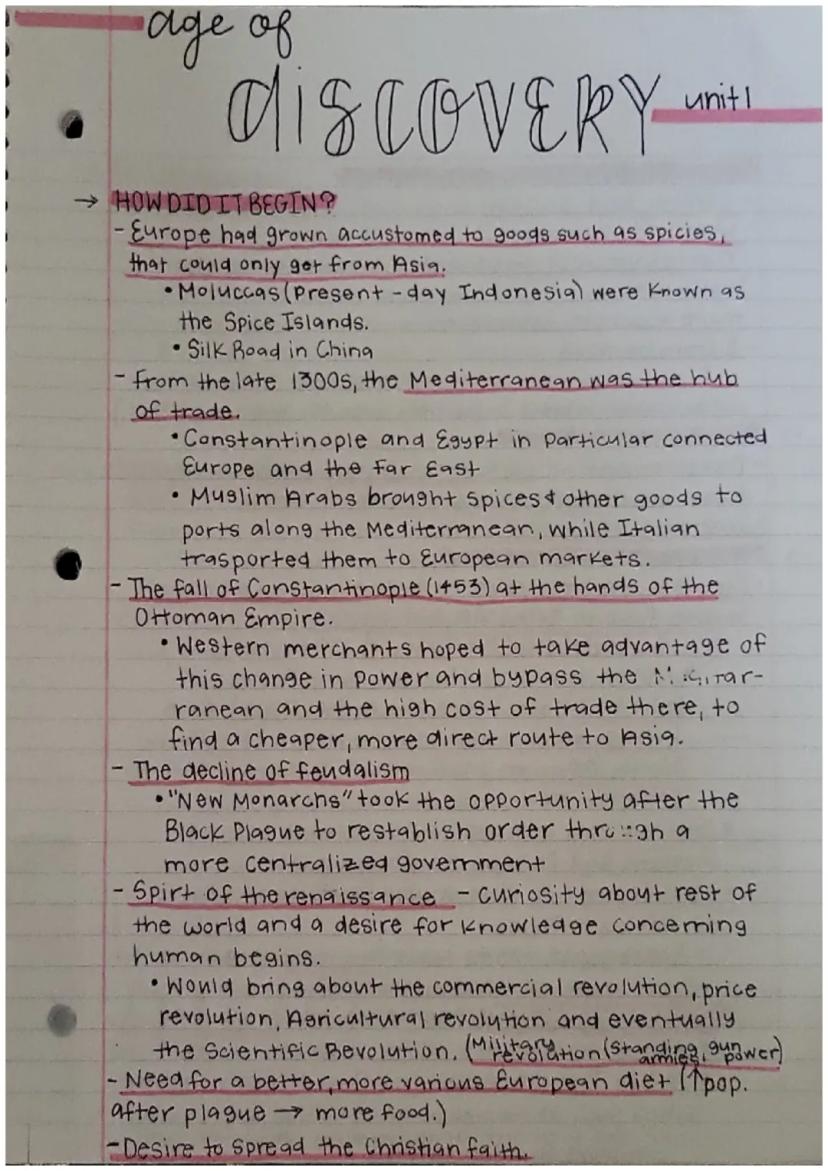 age of
dISCOVERY unit 1
→ HOW DID IT BEGIN?
- Europe had grown accustomed to goods such as spicies,
that could only get from Asia.
• Moluccas (Present-day Indonesia) were known as
the Spice Islands.
• Silk Road in China
- From the late 1300s, the Mediterranean was the hub
of trade.
• Constantinople and Egypt in particular connected
Europe and the Far East
• Muslim Arabs brought spices & other goods to
ports along the Mediterranean, while Italian
trasported them to European markets.
- The fall of Constantinople (1453) at the hands of the
Ottoman Empire.
• Western merchants hoped to take advantage of
this change in power and bypass the
ranean and the high cost of trade there, to
find a cheaper, more direct route to Asia.
- The decline of feudalism
• "New Monarchs" took the opportunity after the
Black Plague to restablish order through a
more centralized government
- Spirt of the renaissance - curiosity about rest of
the world and a desire for knowledge concerning
human begins.
• Would bring about the commercial revolution, price
revolution, Agricultural revolution and eventually
the Scientific Revolution. (Military revolution (standing armies, gun power)
- Need for a better, more various European diet (↑pop.
after plague → more food.)
- Desire to spread the Christian faith.